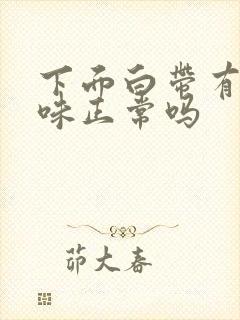 下面白带有
味正常吗
茆大春